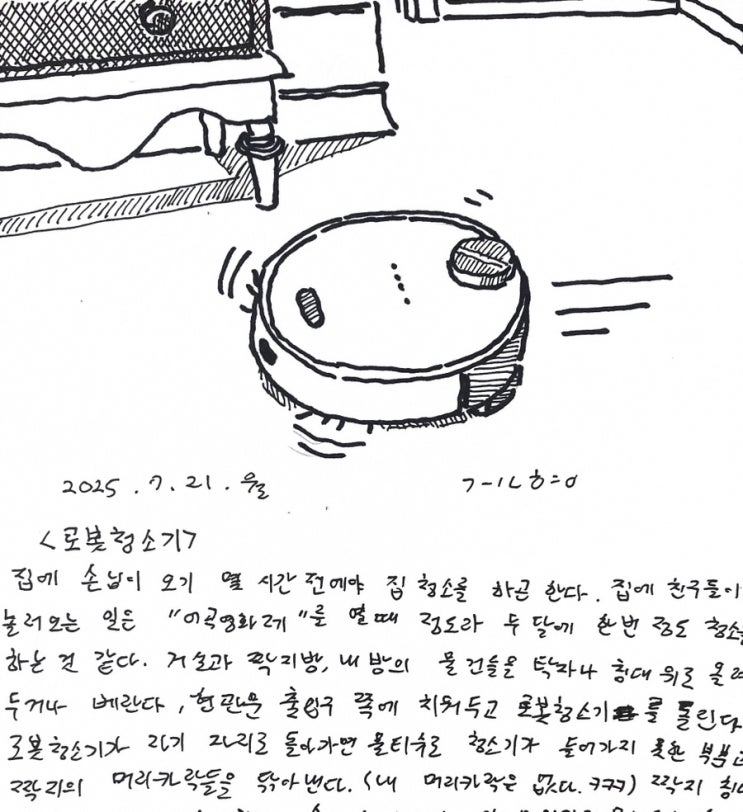 2025 . 7. 21. 월
ㄱ-ㅣㄴㅎ=ㅇ
<로봇청소기>
집에 손님이 오기 열 시간 전에야 집 청소를 하곤 한다. 집에 친구들이
놀러오는 일은 "이곡영화제"를 열 때 정도라 두 달에 한번 정도 청소를
하는 것 같다. 거실과 짝지방, 내 방의 물건들을 탁자나 침대 위로 올려
두거나 베란다, 현관문 출입구 쪽에 치워두고 로봇청소기를 돌린다
로봇청소기가 자기 자리로 돌아가면 물티슈로 청소기가 들어가지 못한 부분과
짝지의 머리카락들을 닦아낸다. (내 머리카락은 없다. ㅋㅋㅋ) 짝지 침대